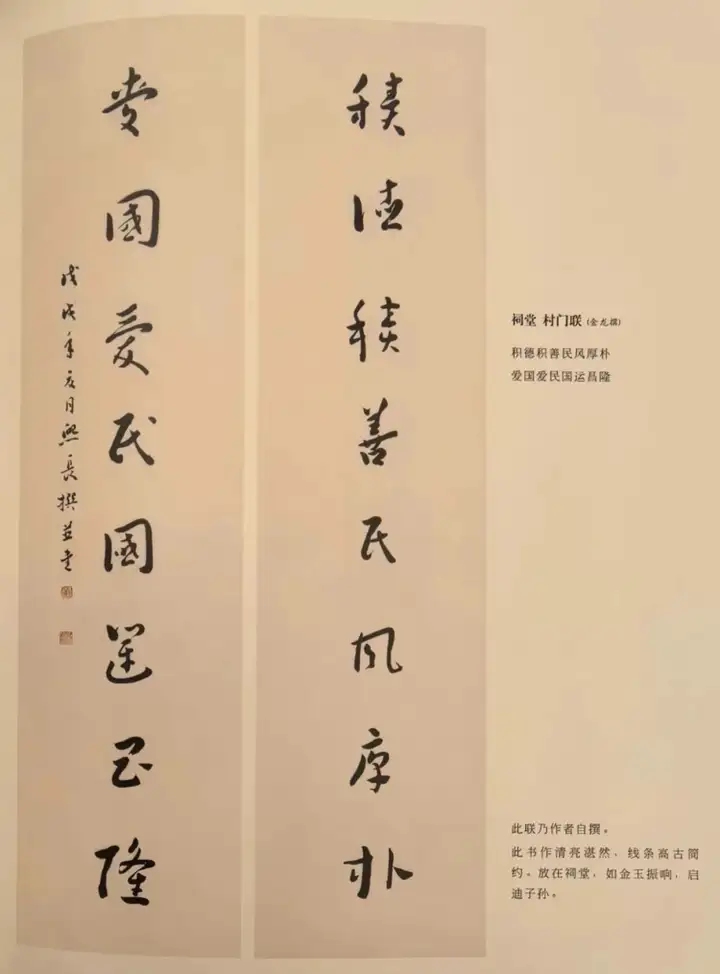 積德積善民風厚朴
愛國愛民國運昌隆
戊戌年月熙長撰並書
祠堂 村门联 (金龙撰)
积德积善民风厚朴
爱国爱民国运昌隆
此联乃作者自撰。
此书作清亮湛然，线条高古简
约。放在祠堂，如金玉振响，启
迪子孙。